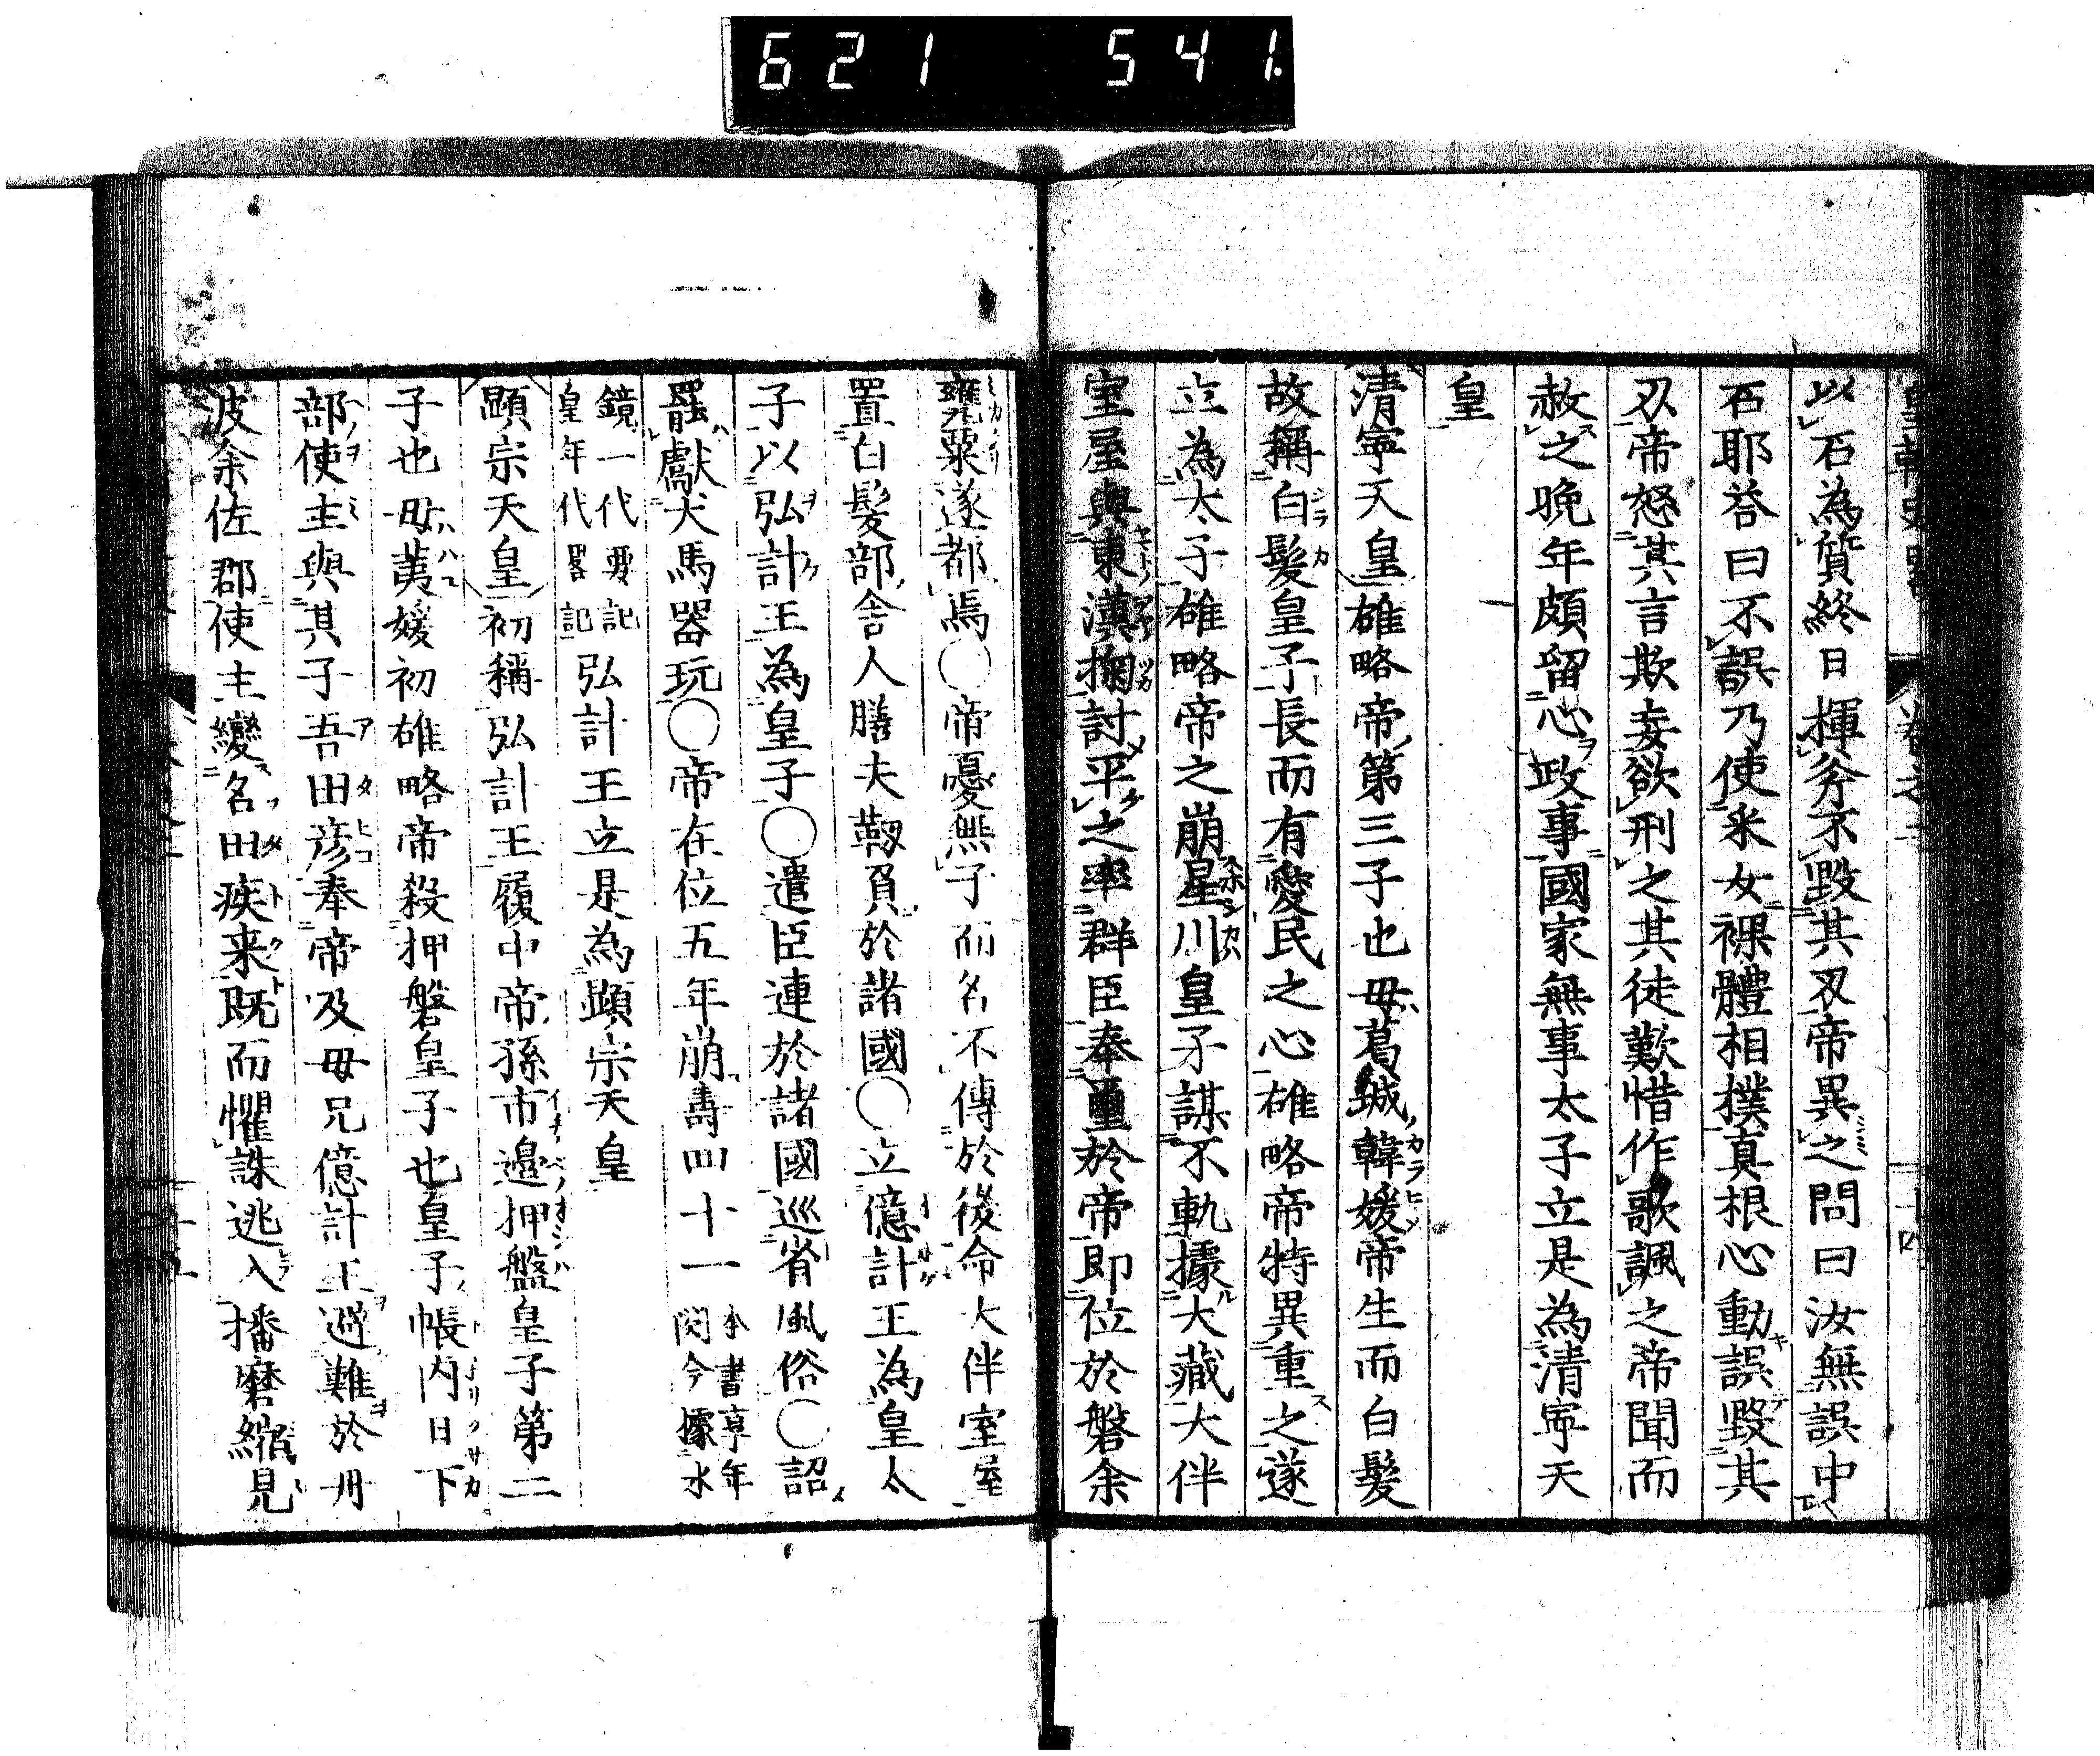 621 541.
以石為質終日揮斧不毀其刃帝異之問曰汝無誤中
石耶荅曰不誤乃使釆女裸體相撲真根心動誤毀其
刃帝怒其言欺妄欲刑之其徒歎惜作歌諷之帝聞而
赦之晩年頗留心政事國家無事太子立是為清寧天
皇
清寧天皇雄略帝第三子也母葛城韓媛帝生而白髮
故稱白髮皇子長而有愛民之心雄略帝特異重之遂
立為太子雄略帝之崩星川皇子謀不軌據大藏大伴
室屋與東漢掬討平之率群臣奉璽於帝即位於磐余
甕栗遂都焉〇帝憂無子而名不傳於後命大伴室屋
置白髮部舎人膳夫靱負於諸國〇立億計王為皇太
子以弘計王為皇子〇遣臣連於諸國巡省風俗〇詔
罷獻犬馬器玩〇帝在位五年崩壽四十一本書享年闕今據水
鏡一代要記皇年代畧記弘計王立是為顯宗天皇
顯宗天皇初稱弘計王履中帝孫市邊押盤皇子第二
子也母荑媛初雄略帝殺押磐皇子也皇子帳内日下
部使主與其子吾田彦奉帝及母兄億計王避難於丹
波余佐郡使主變名田疾来既而懼誅逃入播磨縮見